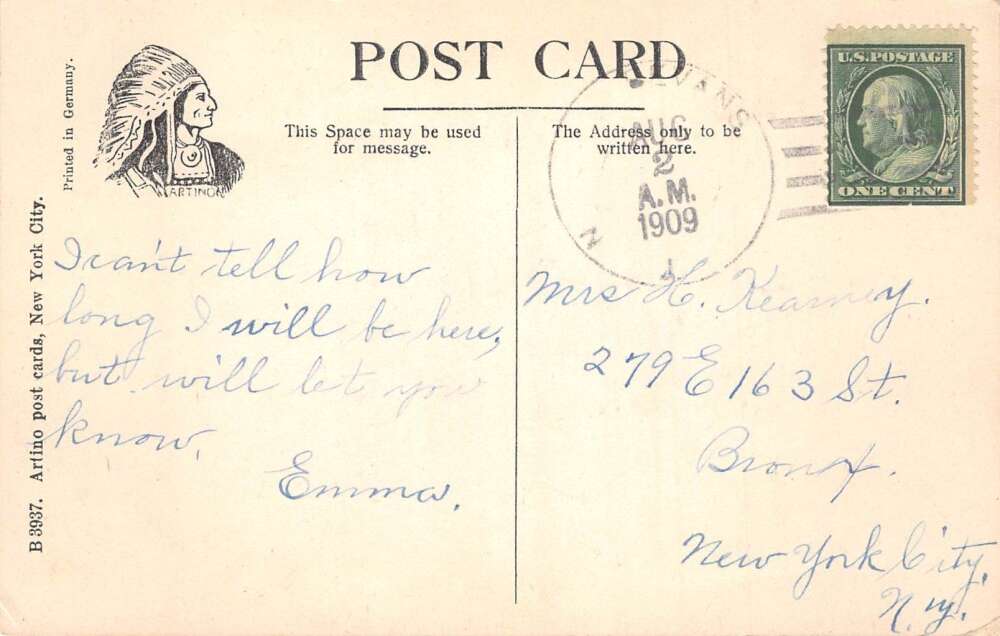 POST CARD
Printed in Germany.
ARTINO
This Space may be used
for message.
The Address only to be
written here.
EVANS
AUG
2
A.M.
1909
N
U.S. POSTAGE
ONE CENT
B 3937. Artino post cards, New York City.
I can't tell how
long I will be here,
but will let you
know.
Emma.
Mrs H. Kearney.
279 E 163 St.
Bronx.
New York City,
N.Y.